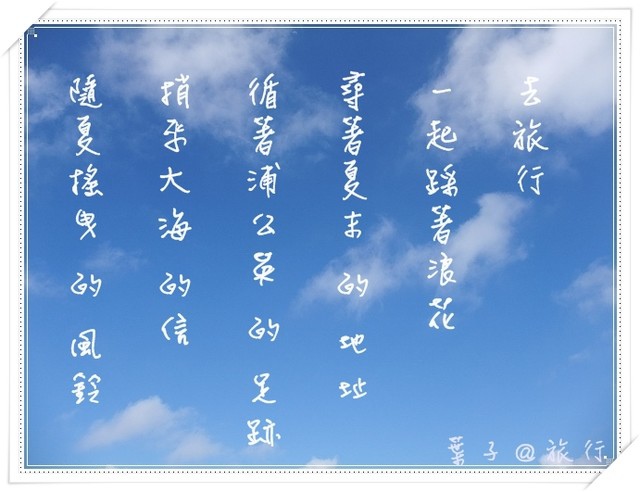 去旅行
一起踩著浪花
尋著夏末的地址
循著蒲公英的足跡
捎來大海的信
隨夏搖曳的風鈴
葉子@旅行